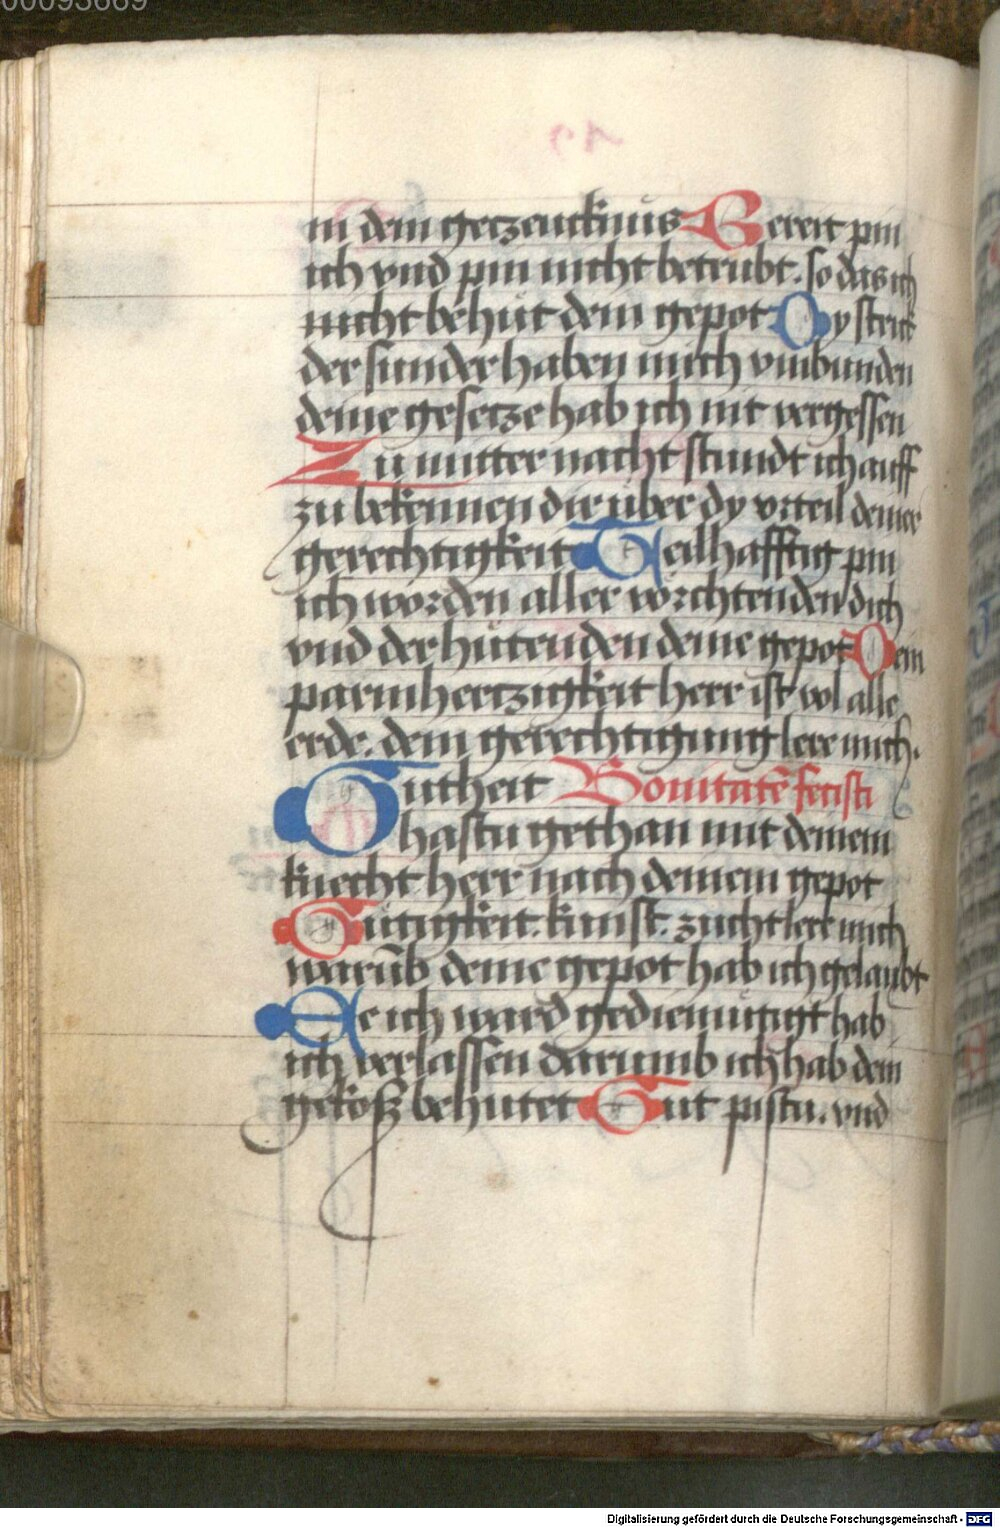 00093669
in dein getzeucknus Bereit pin
ich vnd pin nicht betrubt. so das ich
nicht behut dein gepot Dy strick
der sunder haben mich vmbunden
deine gesetze hab ich nit vergessen
Zu mitternacht stundt ich auff
zu bekennen dir uber dy vrteil deiner
gerechtigkeit Teilhafftig pin
ich worden aller vorchtenden dich
vnd der hutenden deine gepot Dein
parmhertzigkeit herr ist vol alle
erde. dein gerechtigung lere mich.
Gutheit Bonitatē fecisti
hastu gethan mit deinem
knecht herr nach deinem gepot
Gutigkeit. kunst. zucht lere mich
warūb deine gepot hab ich gelaubt
Ee ich ward gediemutigt hab
ich verlassen darumb ich hab dein
gekosz behutet Gut pistu. vnd
Digitalisierung gefördert durch die Deutsche Forschungsgemeinschaft - DFG